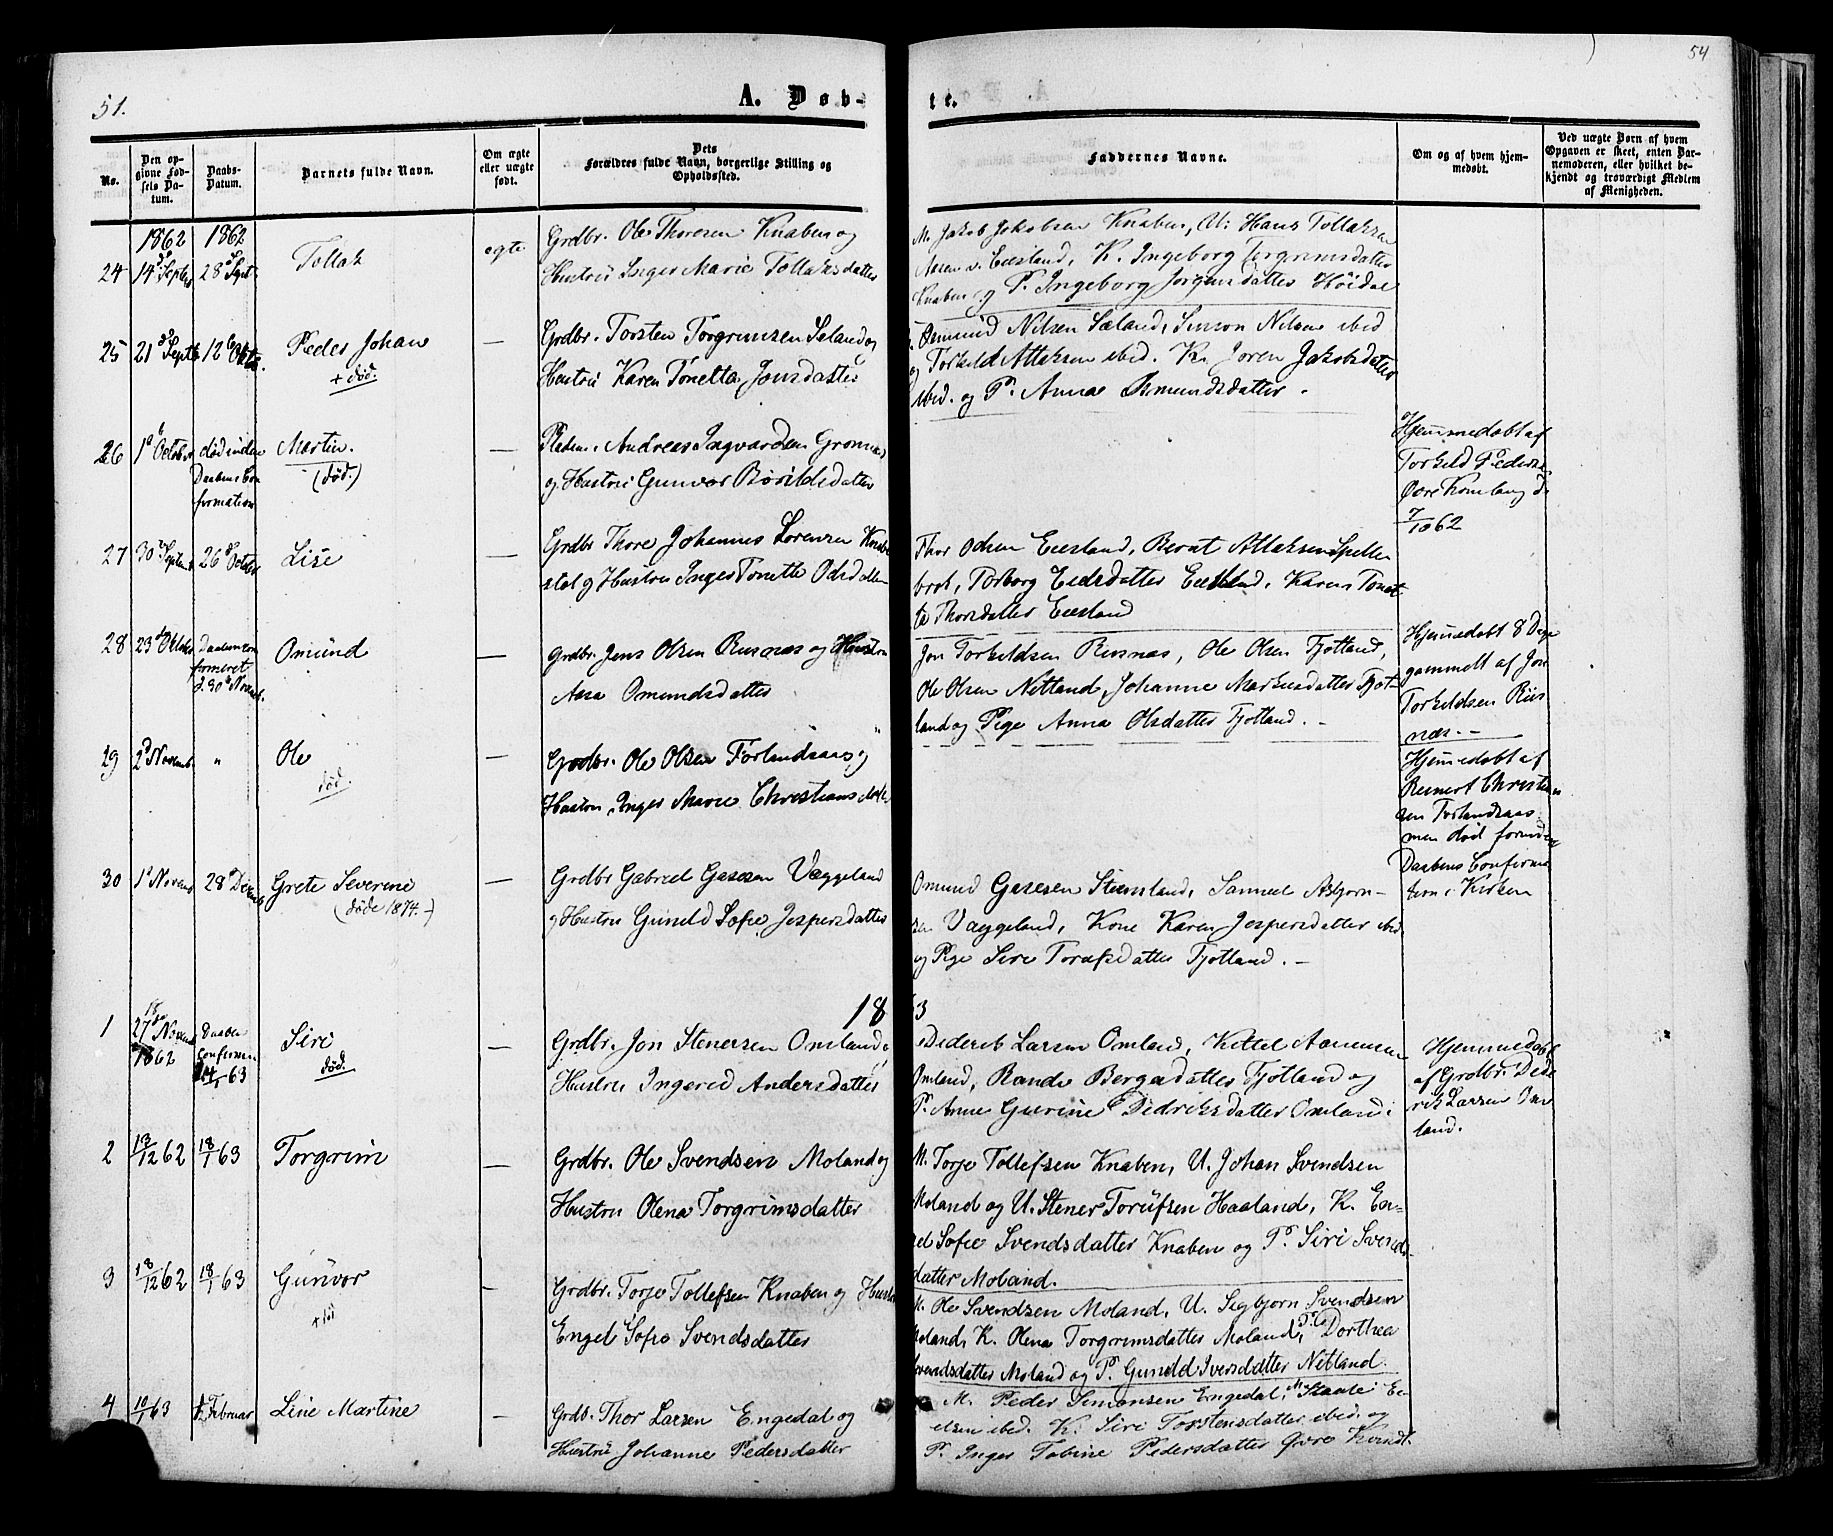 51.
54
A. Døb-
te.
No.
Den op-
givne Fød-
sels Da-
tum.
Daabs-
Datum.
Barnets fulde Navn.
Om ægte
eller uægte
født.
Dets
Forældres fulde Navn, borgerlige Stilling og
Opholdssted.
Faddernes Navne.
Om og af hvem hjem-
medøbt.
Ved uægte Børn af hvem
Opgaven er skeet, enten Bar-
nemoderen, eller hvilket be-
kjendt og troværdigt Medlem
af Menigheden.
1862
1862
24
14d Septbr
28d Sept
Tollak
egte
Grdbr. Ole Thoresen Knaben og
Hustru Inger Marie Tollaksdatter
M. Jakob Jakobsen Knaben, U. Hans Tollaksen
Aasen v. Eeisland, K. Ingeborg Torgrimsdatter
Knaben og P. Ingeborg Jørgensdatter Höidal
25
21d Septb
12 Oktb.
Peder Johan
+ död.
—
Grdbr. Torsten Torgrimsen Seland og
Hustru Karen Tonetta Jonsdatter
Osmund Nilsen Sæland, Simson Nilsen ibid
og Torkild Atlaksen ibid. K. Joren Jakobsdatter
ibid. og P. Anna Osmundsdatter.
26
1d October
död inden
Daabens Con
firmation
Martin.
(död.)
—
Pladsm. Andreas Ingvardsen Gronnes
og Hustru Gunvor Borildsdatter
Hjemmedøbt af
Torkild Peders.
Øvre Kvinlaug d.
7/10 62
27
30 Septemb
26d Octobr
Lise
—
Grdbr Thore Johannes Lorensen Knabe
stol og Hustru Inger Tonette Odsdatter
Thor Odsen Eeisland, Bernt Atlaksen Spelle
brot, Torborg Eedsdatter Eeisland, Karen Tonet
te Thorsdatter Eeisland
28
23d Oktober
Daaben con
firmeret
d. 30d Novemb.
Omünd
—
Grdbr. Jens Olsen Rusnæs og Hustru
Aasa Omundsdatter
Jon Torkildsen Risnæs, Ole Olsen Fjotland,
Ole Olsen Netland, Johanne Markusdatter Fjot-
land og Pige Anna Olsdatter Fjotland. -
Hjemmedøbt 8 Dage
gammelt af Jon
Torkildsen Riis
næs. -
29
2d Novemb.
"
Ole
död.
—
Grdbr. Ole Olsen Förlandsaas og
Hustru Inger Marie Christiansdatter
Hjemmedøbt af
Reinert Christian
sen Förlandsaas
men død forinden
Daabens Confirma
tion i Kirken
30
1d Novemb
28d Decemb
Grete Severine
(døde 1874. -)
—
Grdbr Gabriel Gasesen Væggeland
og Hustru Gunild Sofie Jespersdatter
Omund Gasesen Stemsland, Samuel Asbjørn-
sen Væggeland, Kone Karen Jespersdatter ibid.
og Pige Siri Torafsdatter Fjotland. -
18
63
1
27de Novemb
1862
Daaben
confirmeret
4/1 63
Siri
död.
—
Grdbr. Jon Stenersen Omland og
Hustru Ingerid Andersdatter
Diderik Larsen Omland, Kittel Aanensen
Omland, Rande Bergesdatter Fjotland og
P. Anne Gurine Didriksdatter Omland.
Hjemmedøbt
af Grdbr. Dide
rik Larsen Om
land.
2
13/12 62
18/1 63
Torgrim
—
Grdbr. Ole Svendsen Moland og
Hustru Olena Torgrimsdatter
M. Torje Tollefsen Knaben, U. Johan Svendsen
Moland og U. Stener Torüfsen Haaland, K. En-
gel Sofie Svendsdatter Knaben og P. Siri Svends-
datter Moland.
3
18/12 62
18/1 63
Gunvor
+ död
—
Grdbr. Torje Tollefsen Knaben og Hustru
Engel Sofie Svendsdatter
M. Ole Svendsen Moland, U. Segbjørn Svendsen
Moland, K. Olena Torgrimsdatter Moland, P. Dorthea
Svendsdatter Moland og P. Gunild Iversdatter Netland.
4
10/1 63
Februar
Line Martine
—
Grdb. Thor Larsen Engedal og
Hustru Johanne Pedersdatter
M. Peder Simonsen Engedal, M. Staale E-
elsen ibid. K. Siri Torstensdatter ibid. og
P. Inger Tobine Pedersdatter Øvre Kvinl.